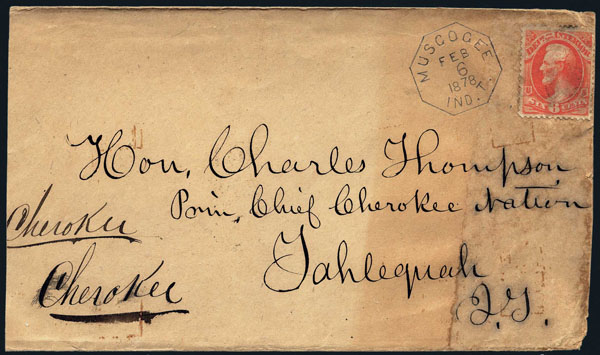 MUSCOGEE
FEB
6
1878
IND. T.
DEPT. INTERIOR
SIX CENTS
Hon. Charles Thompson
Prin. Chief Cherokee Nation
Cherokee
Tahlequah
Cherokee
I.T.